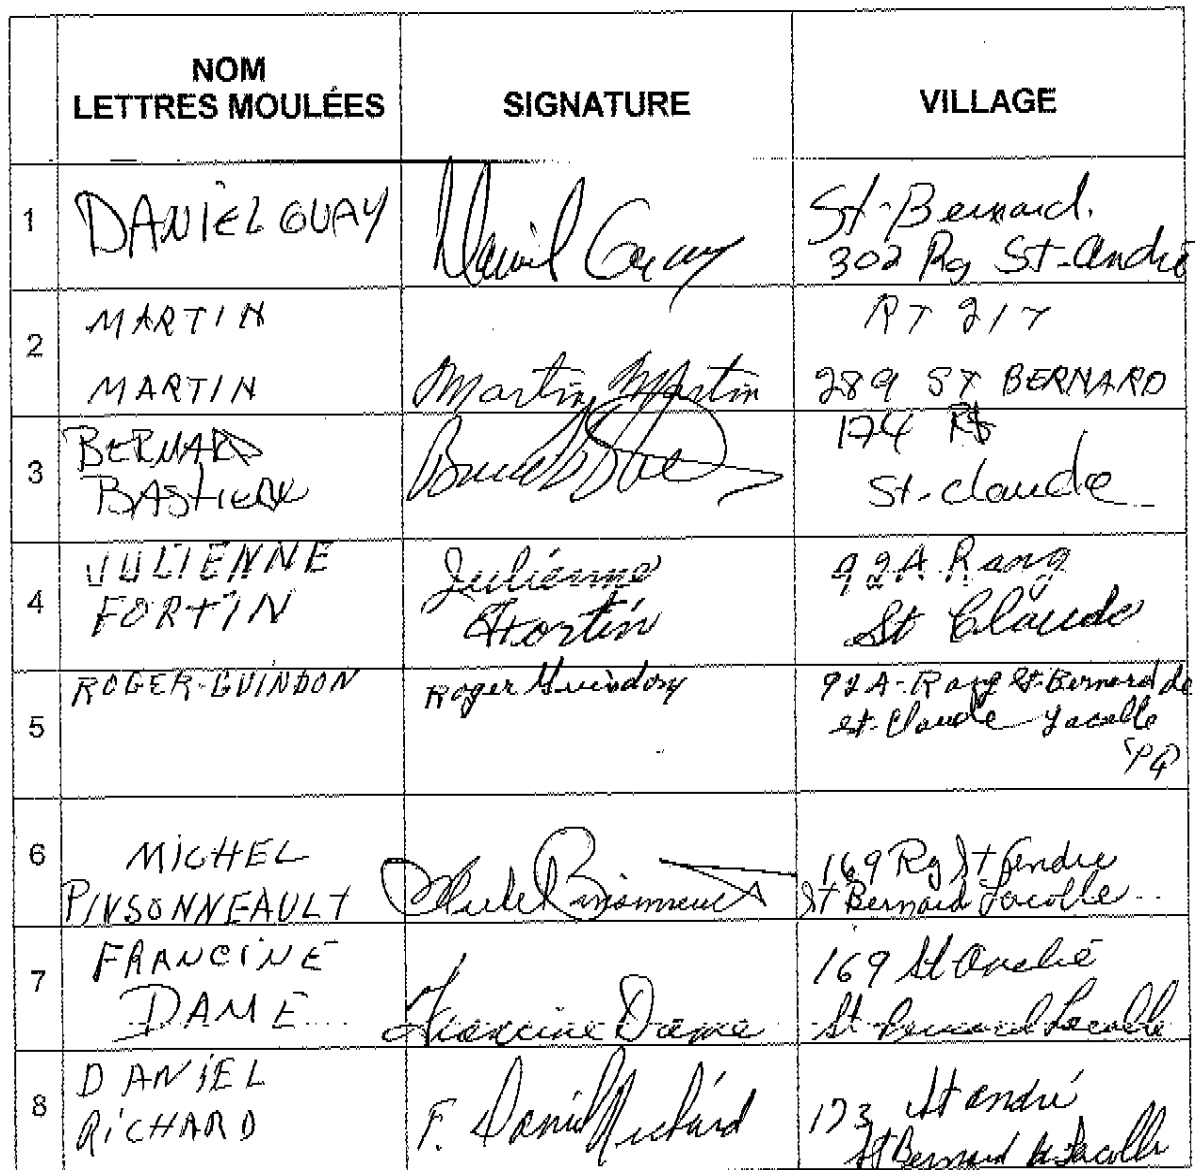 NOM
LETTRES MOULÉES
SIGNATURE
VILLAGE
1
DANIEL GUAY
Daniel Guay
St-Bernard.
302 Rg St-André
2
MARTIN
MARTIN
Martin Martin
RT 217
289 ST BERNARD
3
BERNARD
174 Rg
St-Claude
4
JULIENNE
FORTIN
Julienne
Fortin
92A Rang
St Claude
5
ROGER GUINDON
Roger Guindon
92A-Rang St-Bernard de
St-Claude Lacolle
PQ
6
MICHEL
PINSONNEAULT
Michel Pinsonneault
169 Rg St André
St Bernard Lacolle
7
FRANCINE
DAME
Francine Dame
169 St André
St-Bernard Lacolle
8
DANIEL
RICHARD
F. Daniel Richard
173 St André
St Bernard de Lacolle